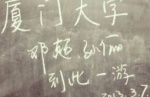 厦门大学
邓超,孙俪
到此一游
2013.3.7